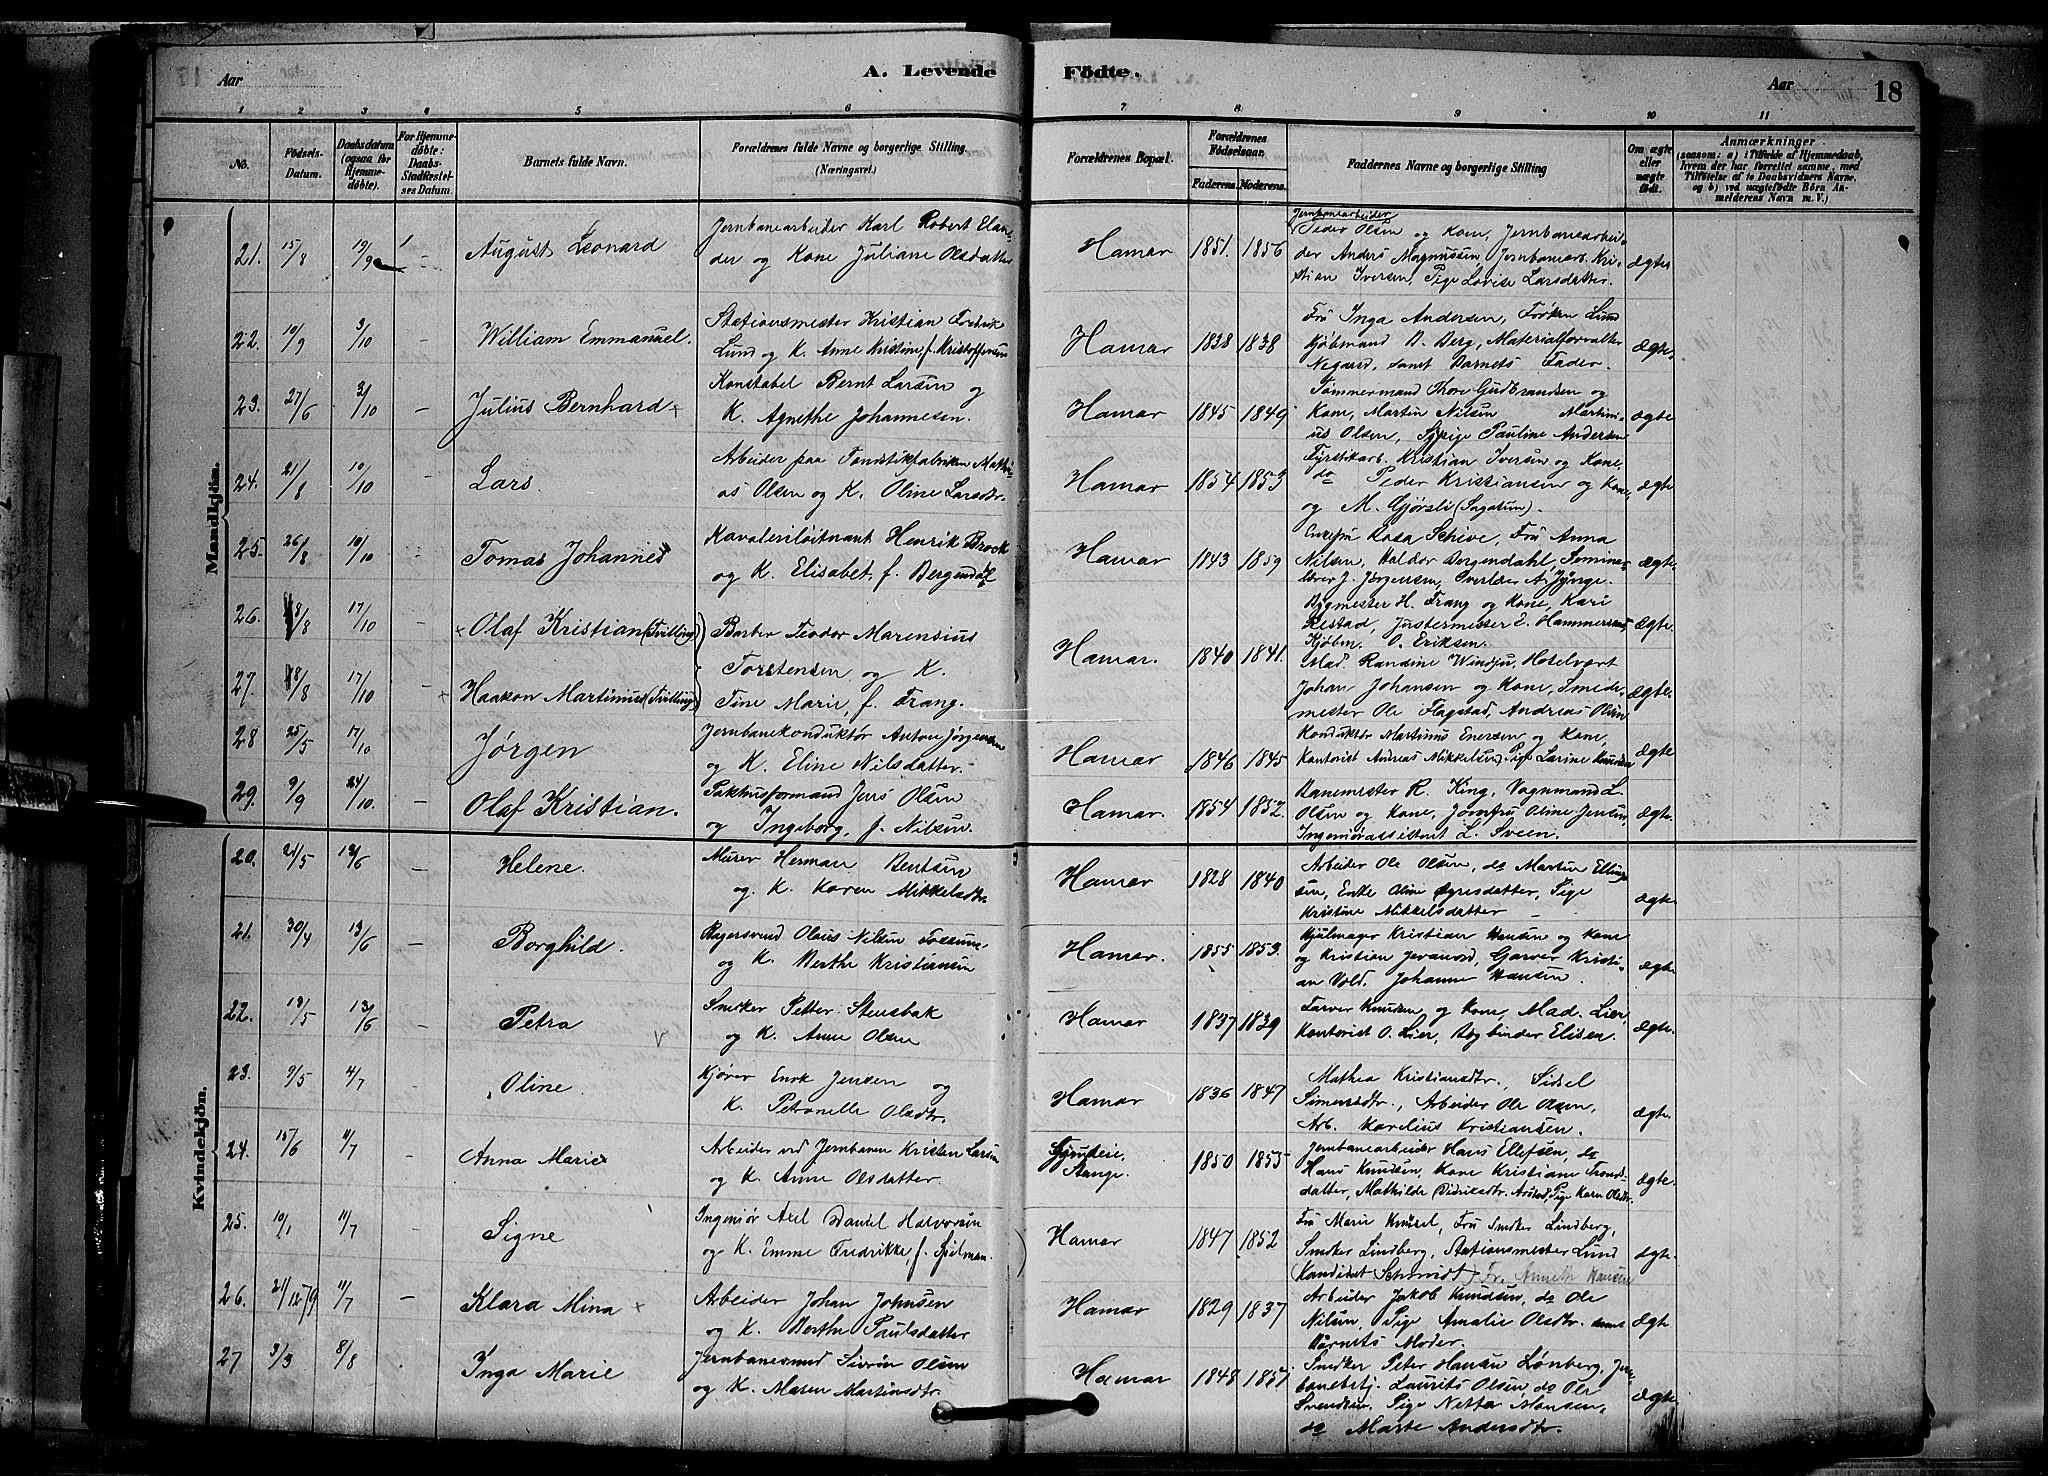 Aar
A. Levende
Födte.
Aar
18
1 2 3 4 5 6 7 8 9 10 11
No.
Födsels-Datum.
Daabsdatum (ogsaa for Hjemme-døbte).
For Hjemme-døbte: Daabs-Stadfæstel-ses Datum.
Barnets fulde Navn.
Forældrenes fulde Navne og borgerlige Stilling (Næringsvei).
Forældrenes Bopæl.
Forældrenes Födselsaar.
Faderens. Moderens.
Faddernes Navne og borgerlige Stilling
Om ægte eller uægte født.
Anmærkninger
(saasom: a) i Tilfælde af Hjemmedaab, hvem der har forrettet samme, med Tilføielse af to Daabsvidners Navne, og b) ved uægtefødte Börn Anmelderens Navn m. V.)
Mandkjön.
21. 15/8 19/9 August Leonard
Jernbanearbeider Karl Robert Elan-
der og Kone Juliane Olsdatter
Hamar 1851. 1856
Jernbanearbeider
Peder Olsen og Kone, Jernbanearbei-
der Anders Magnussen, Jernbanearb. Kri-
stian Iversen, Pige Lovise Larsdatter.
ægte
22. 10/9 3/10 – William Emmanuel.
Stationsmester Kristian Fredrik
Lund og K. Anne Kristine, f. Kristoffersen
Hamar 1828 1838
Fru Inga Andersen, Frøken Lund
Kjøbmand B. Berg, Materialforvalter
Negaard, samt Barnets Fader.
ægte.
23. 27/6 3/10 – Julius Bernhard
Konstabel Bernt Larsen og
K. Agnethe Johannesen.
Hamar 1845 1849
Tømmermand Thore Gudbrandsen og
Kone, Martin Nilsen Martini-
us Olsen, Sypige Pauline Andersen
ægte
24. 21/8 10/10 – Lars.
Arbeider paa Tændstikfabriken Mathi-
as Olsen og K. Oline Larsdtr.
Hamar 1854 1853
Fyrstikarb. Kristian Iversen og Kone,
do Peder Kristiansen og Kone
og M. Gjørsli (Sagatun).
ægte
25. 26/8 10/10 – Tomas Johannes
Kavaleriløitnant Henrik Brock
og K. Elisabet, f. Bergendal
Hamar 1843 1859
Enkefru Kaja Schive, Fru Anna
Nilsen, Haldor Bergendahl, Seminar-
lærer J. Jørgensen, Overlær A. Jynge.
ægte
26. 8/8 17/10 Olaf Kristian (Tvilling)
Barber Teodor Marensius
Torstensen, og K.
Tine Marie, f. Frang.
Hamar. 1840 1841.
Bygmester H. Frang og Kone, Kari
Restad, Justermester E. Hammerstad,
Kjøbm. O. Eriksen.
ægte.
27. 8/8 17/10 – Haakon Martinius (Tvilling)
Mad. Randine Windju, Hotelvært
Johan Johansen og Kone, Smede-
mester Ole Flagstad, Andreas Olsen
ægte
28 25/5 17/10 – Jørgen
Jernbanekonduktør Anton Jørgensen
og K. Eline Nilsdatter.
Hamar 1846 1845
Konduktør Martinus Enersen og Kone,
Kontorist Andreas Mikkelsen, Pige Larine Knudsen
ægte
29. 9/9 24/10. – Olaf Kristian.
Pakhusformand Jens Olsen
og Ingeborg, f. Nilsen.
Hamar. 1854 1852.
Banemester R. King, Vognmand L.
Olsen og Kone, Jomfru Oline Jensen,
Ingeniørassistent L. Sveen.
ægte.
Kvindekjön.
20. 21/5 13/6 – Helene.
Murer Herman Bentsen
og K. Karen Mikkelsdtr.
Hamar 1828 1840
Arbeider Ole Olsen, do Martin Elling-
sen, Enke Oline Syresdatter, Pige
Kristine Mikkelsdatter –
ægte.
21. 30/4 13/6 – Borghild.
Bagersvend Olaus Nilsen Fossum
og K. Berthe Kristiansen
Hamar. 1855 1853.
Hjulmager Kristian Hansen og Kone
og Kristian Jevanord, Garver Kristi-
an Vold, Johanne Hansen.
ægte
22. 13/5 13/6 – Petra
Snedker Petter Stensbak
og K. Anne Olsen
Hamar 1837 1839
Farver Knudsen og Kone, Mad. Lier,
Kontorist O. Lier, Bogbinder Elisen.
ægte.
23. 9/5 4/7 Oline
Kjører Enok Jensen og
K. Petronelle Olsdtr.
Hamar 1836 1847
Mathea Kristiansdtr., Sidsel
Simensdtr., Arbeider Ole Olsen,
Arb. Karelius Kristiansen.
ægte.
24. 15/6 11/7 – Anna Marie
Arbeider ved Jernbanen Kristen Larsen
og K. Anne Olsdatter.
Stange. 1850 1855
Jernbanearbeider Hans Ellefsen, do
Hans Knudsen, Kone Kristiane Trond-
datter, Mathilde Didriksdtr. Arstad, Pige Karn Olsdtr.
ægte.
25. 10/1 11/7 Signe
Ingeniør Axel Daniel Halvorsen
og K. Emme Fredrikke, f. Spilman.
Hamar 1847 1852
Fru Marie Knüsel, Fru Snedker Lindberg,
Snedker Lindberg, Stationsmester Lund
(Kandidat Schmidt) Fr. Anneth Hansen
ægte.
26. 21/12 79 11/7 – Klara Mina
Arbeider Johan Johnsen
og K. Berthe Paulsdatter
Hamar 1829 1837
Arbeider Jakob Knudsen, do Ole
Nilsen, Pige Amalie Olsdtr. samt
Barnets Moder.
ægte
27 3/3 8/8 Inga Marie
Jernbanesmed Sivrin Olsen
og K. Maren Martinsdtr.
Hamar 1848 1857
Snedker Peter Hansen Lønberg, Jern-
banebetj. Laurits Olsen, do Ole
Svendsen, Pige Netta Monsen,
do Marte Andersdtr.
ægte.